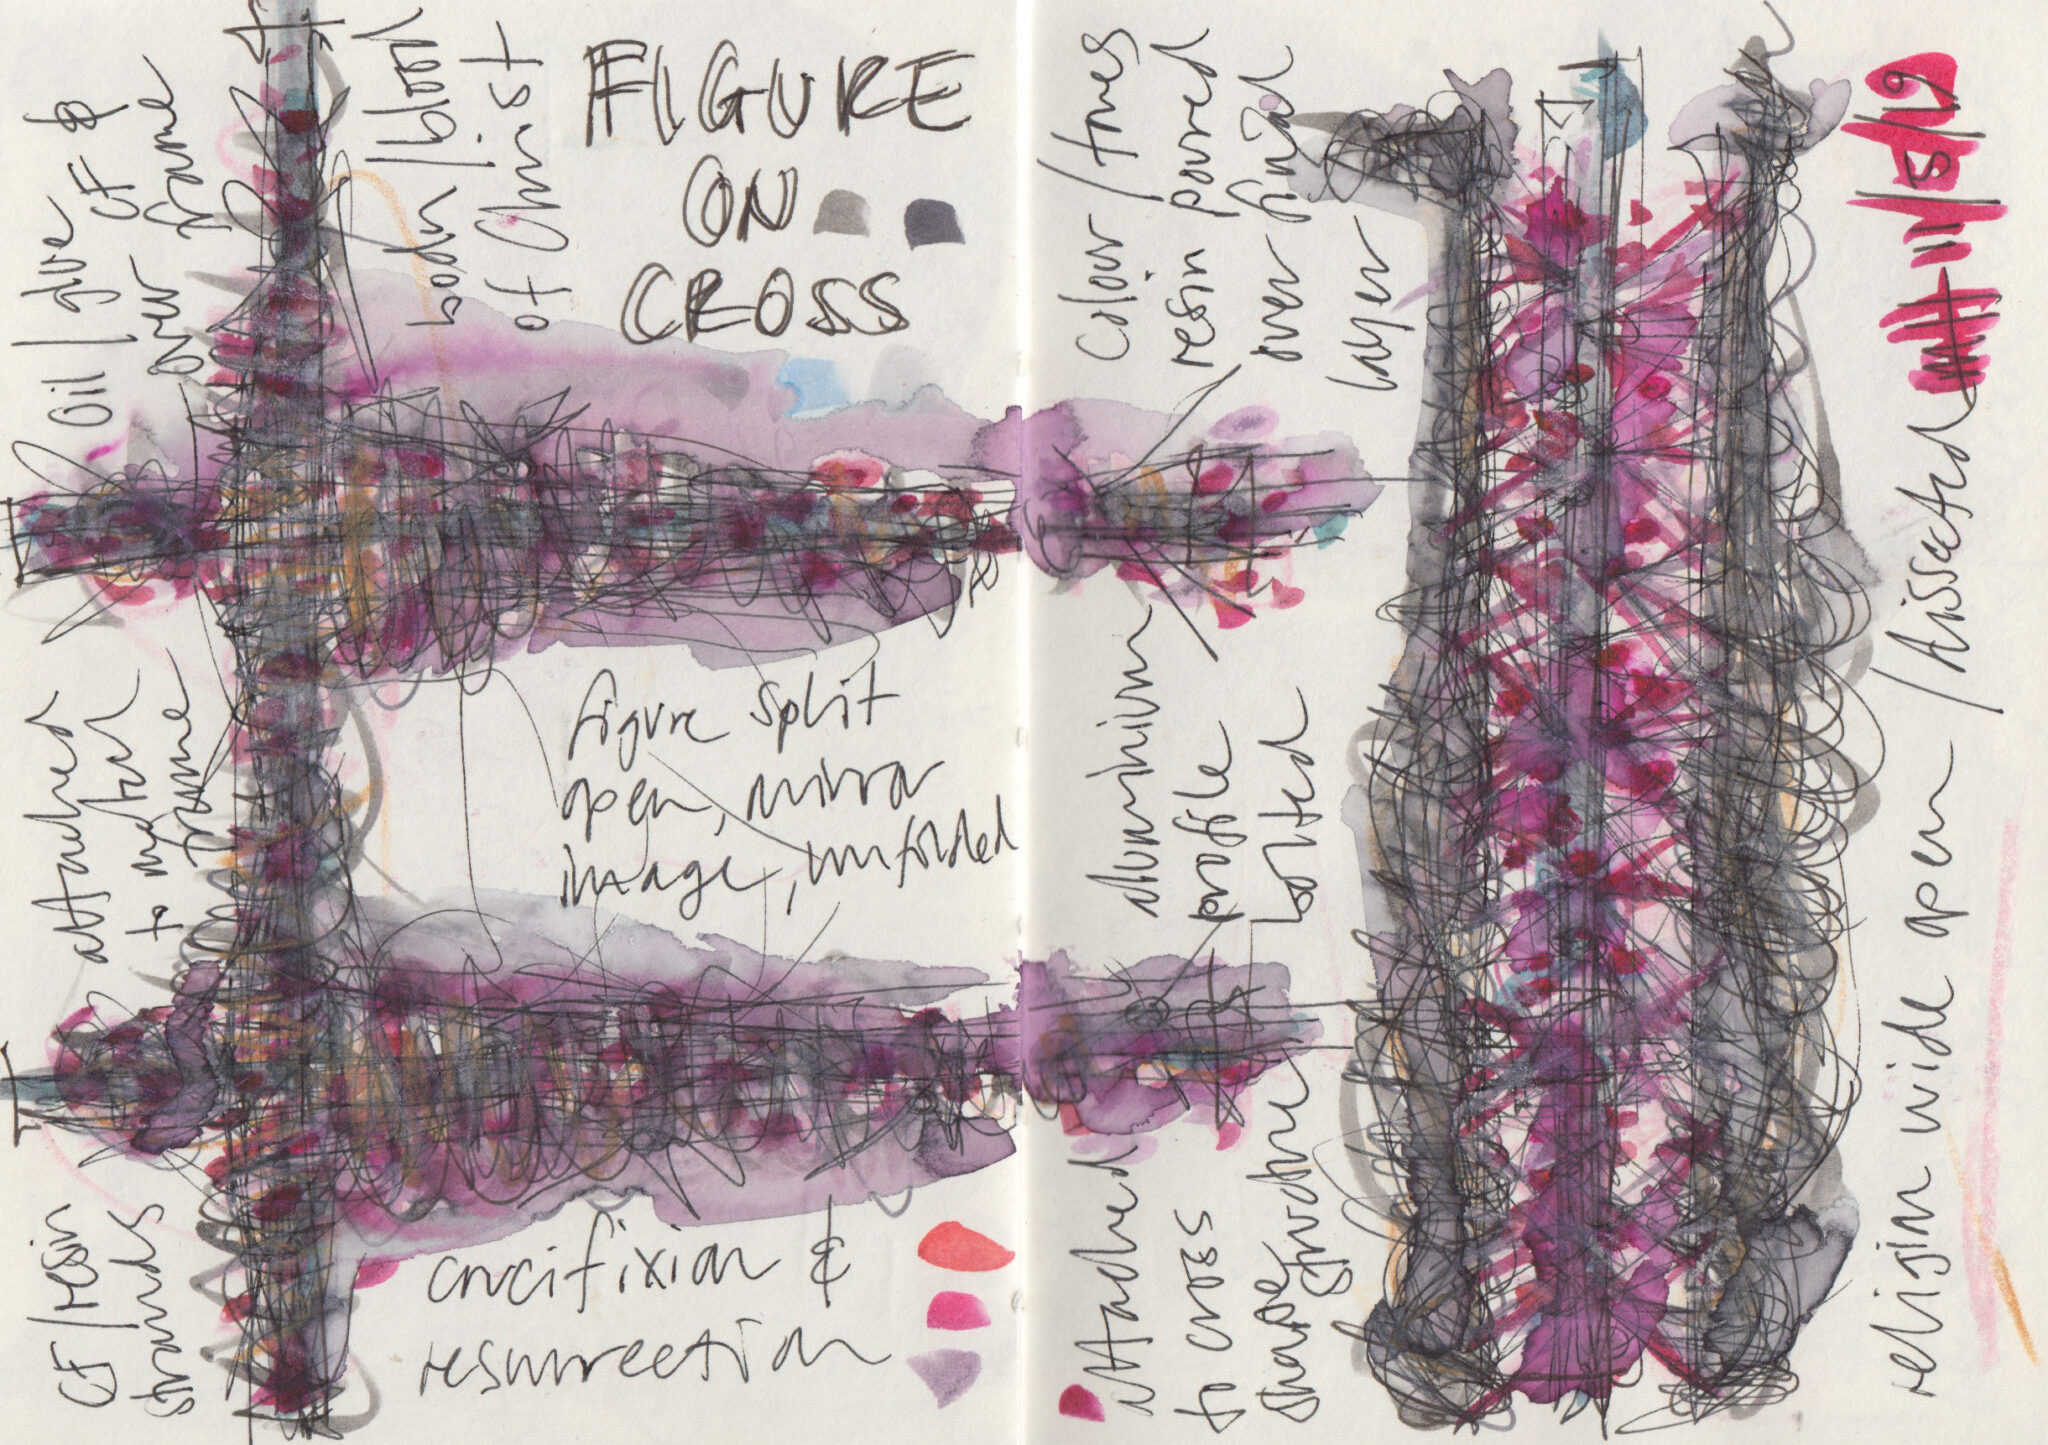 FIGURE
ON
CROSS
oil / glue CF &
over frame
body / blood
of Christ
attached
to metal
frame
figure split
open, mirror
image, unfolded
CF / resin
strands
crucifixion &
resurrection
colour / tones
resin poured
over
layer
aluminium
profile
bolted
attached
to cross
shaped
structure
religion wide open / dissected
11/5/19